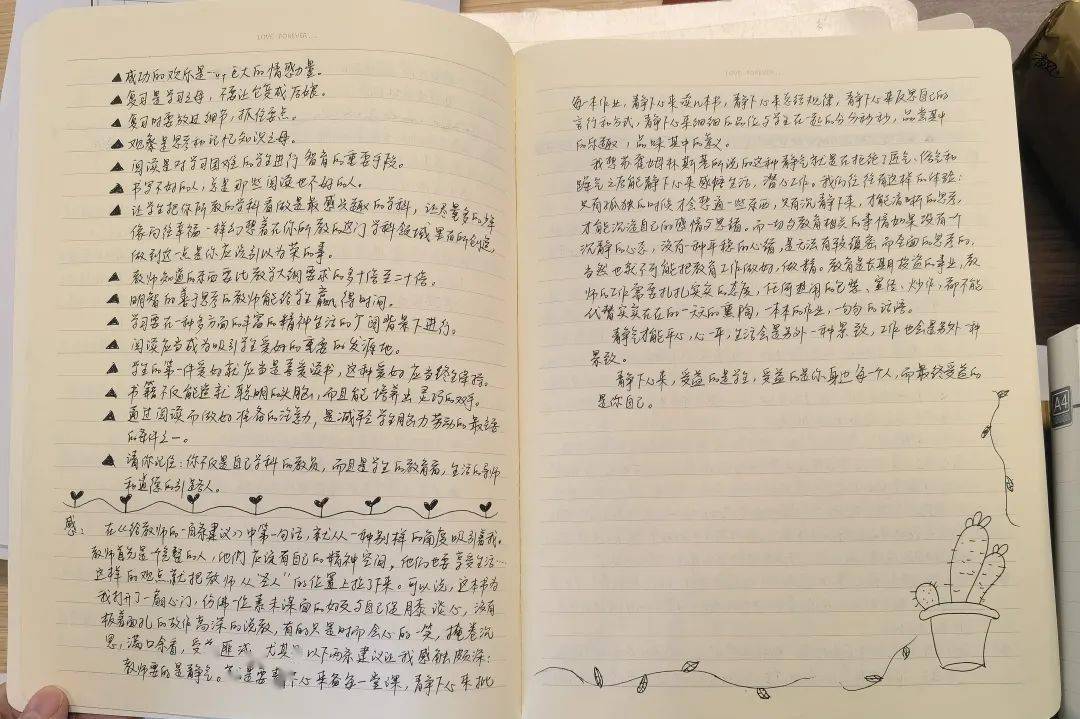 LOVE FOREVER...
▲成功的欢乐是一种巨大的情感力量。
▲复习是学习之母，不要让它变成后娘。
▲复习时要放过细节，抓住要点。
▲观察是思考和记忆知识之母。
▲阅读是对学习困难的学生进行智育的重要手段。
▲书写不好的人，总是那些阅读也不好的人。
▲让学生把你所教的学科看做是最感兴趣的学科，让尽量多的少年
像向往幸福一样幻想着在你所教的这门学科领域里有所创造，
做到这一点是你应该引以为荣的事。
▲教师知道的东西要比教学大纲要求的多十倍至二十倍。
▲明智的善于思考的教师能给学生赢得时间。
▲学习要在一种多方面的丰富的精神生活的广阔背景下进行。
▲阅读应当成为吸引学生爱好的重要的发源地。
▲学生的第一件爱好就应当是喜爱读书，这种爱好应当终生保持。
▲书籍不仅能造就聪明的头脑，而且能培养出灵巧的双手。
▲通过阅读而做好准备的注意力，是减轻学生脑力劳动的最主要
的条件之一。
▲请你记住：你不仅是自己学科的教员，而且是学生的教育者，生活的导师
和道德的引路人。
感：在《给教师的一百条建议》中第一句话，就从一种别样的角度吸引着我。
教师首先是个完整的人，他們应该有自己的精神空间，他们也要享受生活…
这样的观点就把教师从“圣人”的位置上拉了下来。可以说，这本书为
我打开了一扇心门，仿佛一位素未谋面的好友与自己促膝谈心，没有
板着面孔的故作高深的说教，有的只是时而会心的一笑，掩卷沉
思，满口余香，受益匪浅。尤其 以下两条建议让我感触颇深：
教师要的是静气。 是要静下心来备每一堂课，静下心来批
LOVE FOREVER...
每一本作业，静下心来读几本书，静下心来总结规律，静下心来反思自己的
言行和方式，静下心来细细的品位与学生在一起的分分秒秒，品尝其中
的乐趣，品味其中的意义。
我想苏霍姆林斯基所说的这种静气就是在拒绝了匠气、俗气和
躁气之后能静下心来感悟生活，潜心工作。我们往往有这样的体验：
只有孤独的时候才会想通一些东西，只有沉静下来，才能清晰的思考，
才能沉淀自己的感情与思绪。而一切与教育相关的事情如果没有一个
沉静的心态，没有一种平稳的心绪，是无法有致缜密而全面的思考的，
当然也就不可能把教育工作做好，做精。教育是长期投资的事业，教
师的工作需要扎扎实实的态度，任何想用的包装、宣传、炒作，都不能
代替实实在在的一天天的熏陶，一本本的作业，一句句的话语。
静气才能平心，心一平，生活会是另外一种景致，工作也会是另外一种
景致。
静下心来，受益的是学生，受益的是你身边每个人，而最终受益的
是你自己。
A4